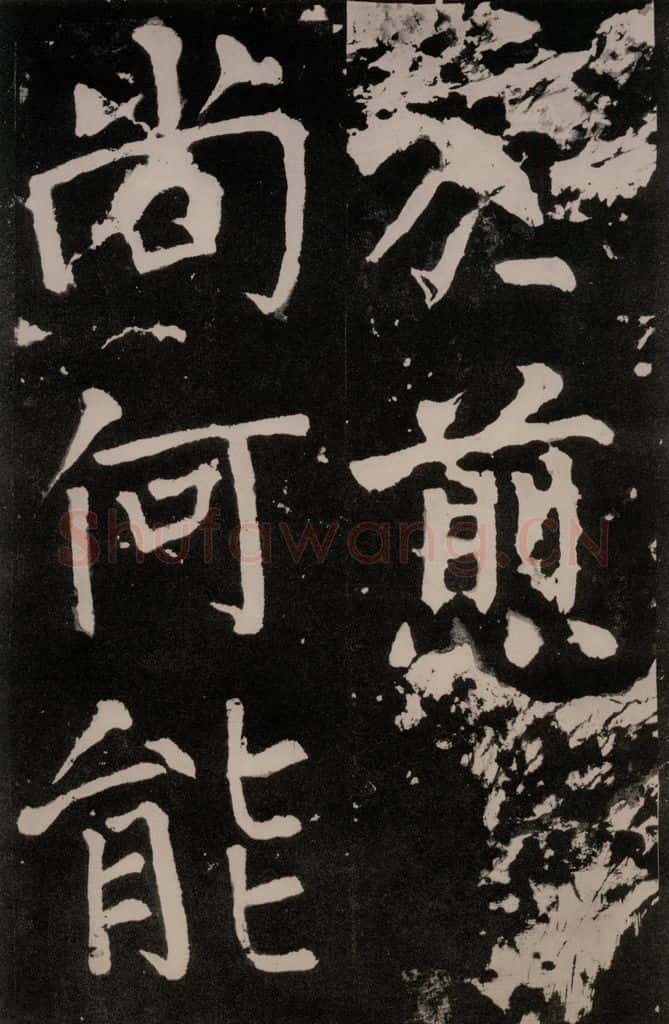 煎
尚何能
Shufawang.CN